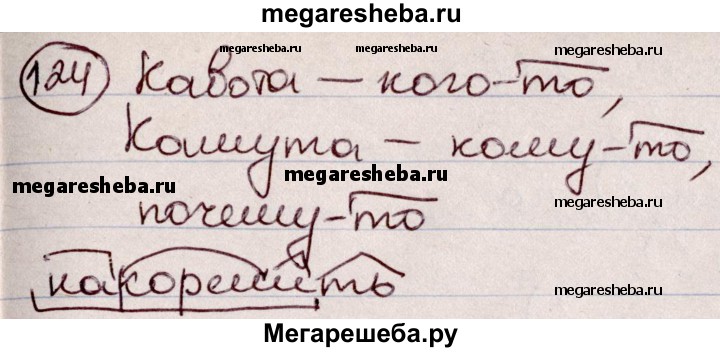 megaresheba.ru
megaresheba.ru megaresheba.ru megaresheba.ru
124 Кавота – кого-то,
Комута – кому-то,
megaresheba.ru megaresheba.ru megaresheba.ru
почему-то
накормить
megaresheba.ru
Мегарешеба.ру